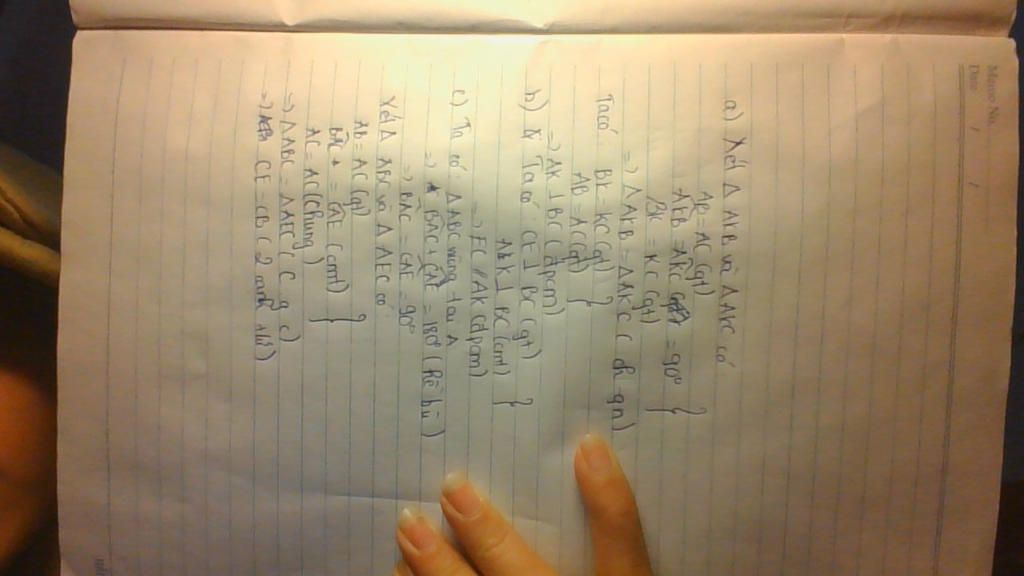 Memo No.
Date / /
a) Xét Δ AKB và Δ AKC có
AB = AC (gt)
AKB = AKC = 90°
BK = KC (gt)
=> Δ AKB = Δ AKC ( ch - gn)
Ta có: BK = KC (gt)
AB = AC (gt)
=> AK ⊥ BC (đpcm)
b) Ta có: CE ⊥ BC (gt)
AK ⊥ BC (cmt)
=> EC // AK (đpcm)
c) Ta có: Δ ABC vuông tại A
=> BAC + CAE = 180° (kề bù)
=> BAC = CAE = 90°
Xét Δ ABC và Δ AEC có
Ab = AC (gt)
BAC = CAE (cmt)
AC = AC (Chung)
=> Δ ABC = Δ AEC ( C g c)
=> CE = CB ( 2 cạnh